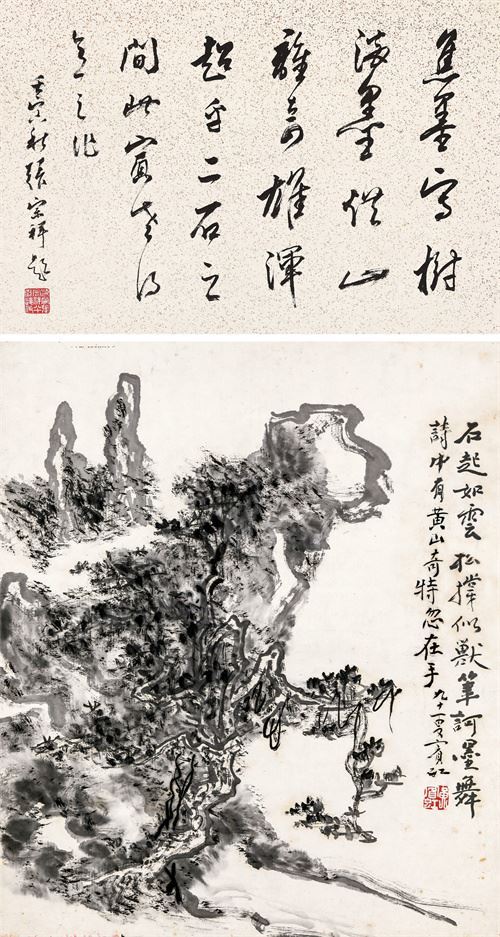 焦墨写樹
淡墨供山
離奇雄渾
超乎二石之
間此賓老得
意之作
壬寅秋張宗祥題
石起如雲松攫似獸筆訶墨舞
詩中有黃山奇特忽在手
九十一叟賓虹